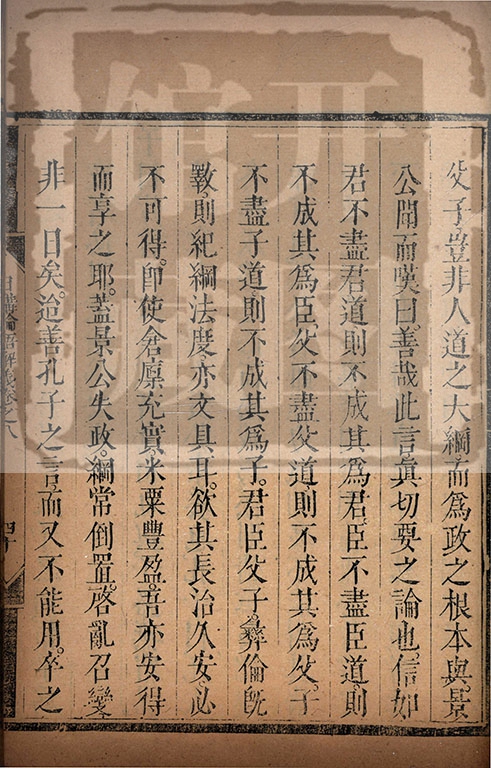 父子豈非人道之大綱而爲政之根本與景
公聞而嘆曰善哉此言眞切要之論也信如
君不盡君道則不成其爲君臣不盡臣道則
不成其爲臣父不盡父道則不成其爲父子
不盡子道則不成其爲子君臣父子彝倫旣
斁則紀綱法度亦文具耳欲其長治久安必
不可得卽使倉廩充實米粟豐盈吾亦安得
而享之耶蓋景公失政綱常倒置啓亂召變
非一日矣迨善孔子之言而又不能用卒之
日講論語解義卷之八
四十